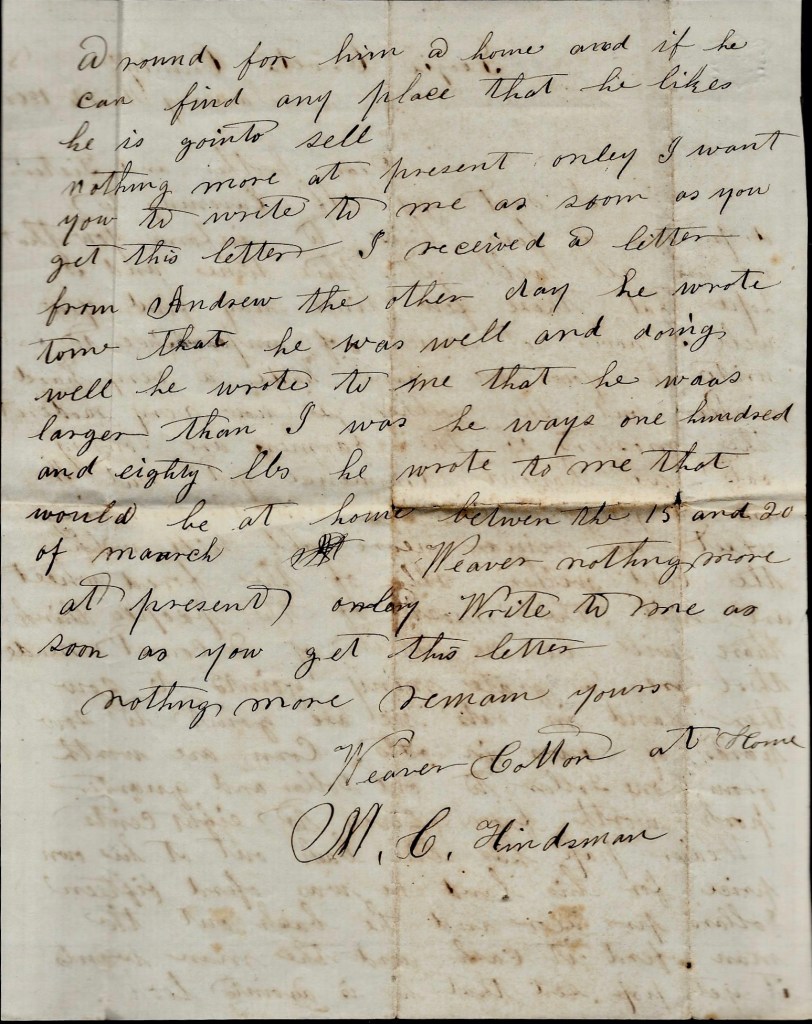 a round for him a home and if he
can find any place that he likes
he is gointo sell
nothing more at present onley I want
you to write to me as soon as you
get this letter I received a litter
from Andrew the other day he wrote
tome that he was well and doing
well he wrote to me that he waas
larger than I was he ways one hundred
and eighty lbs he wrote to me that
would be at home betwen the 15 and 20
of maurch Weaver nothng more
at present onley Write to me as
soon as you get this letter
nothng more remain yours
Weaver Cotton at Home
M. C. Hindsman